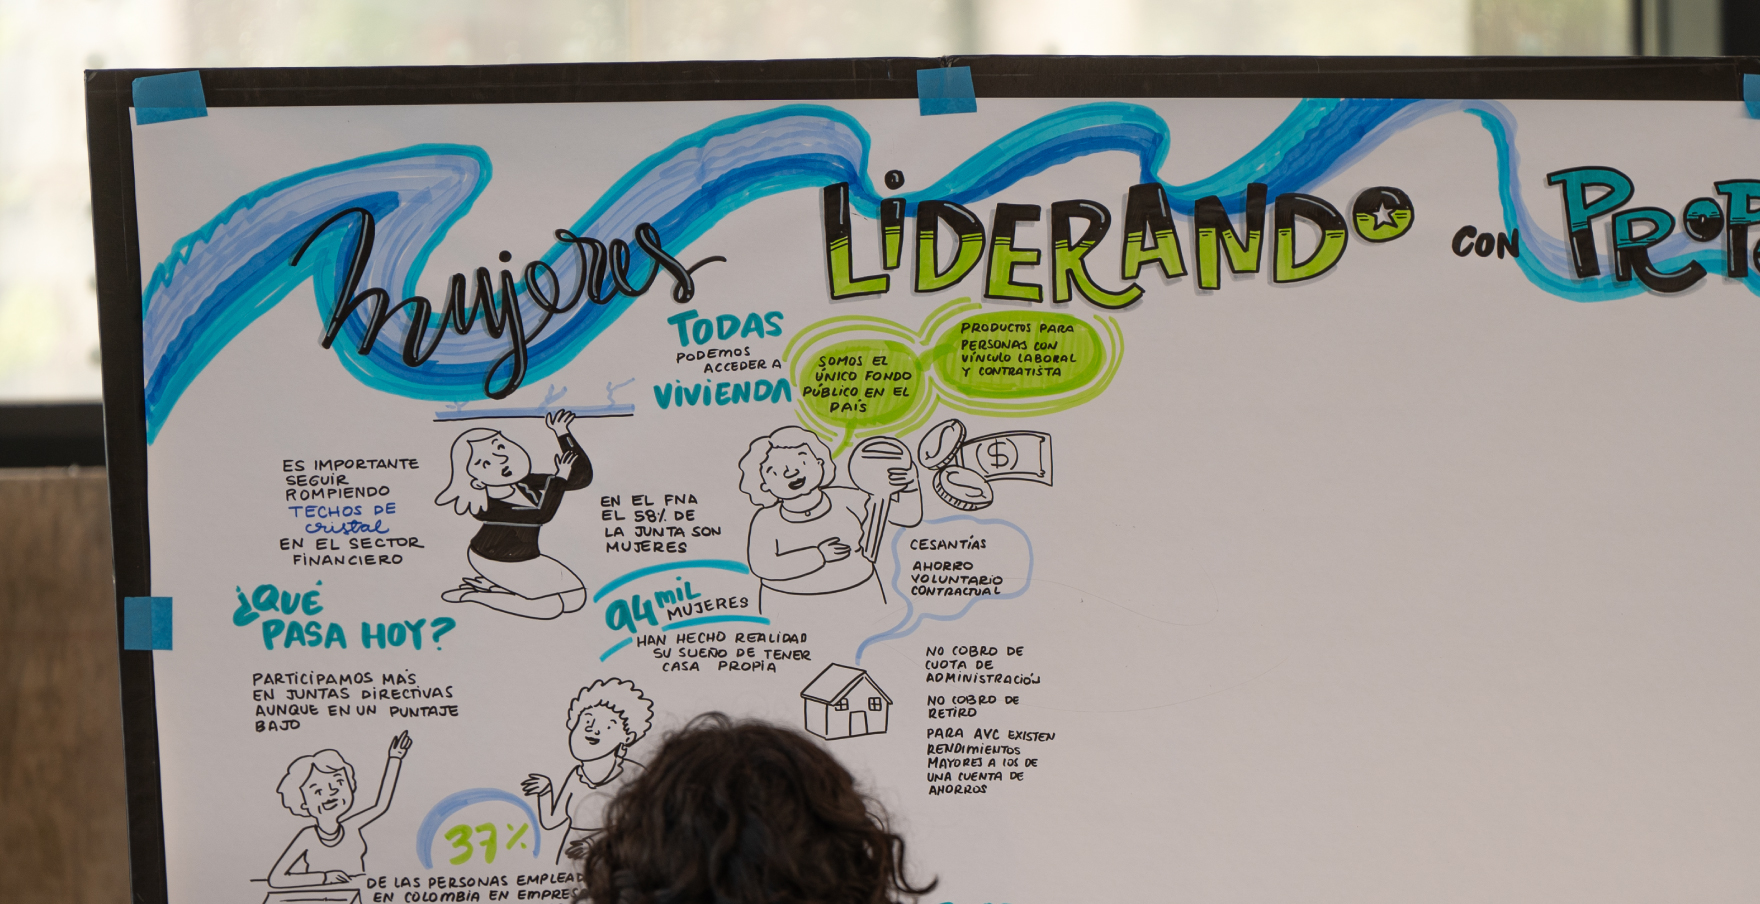 mujeres LiDERANDO CON
TODAS
PODEMOS
ACCEDER A
VIVIENDA
SOMOS EL
ÚNICO FONDO
PÚBLICO EN EL
PAÍS
PRODUCTOS PARA
PERSONAS CON
VÍNCULO LABORAL
Y CONTRATISTA
ES IMPORTANTE
SEGUIR
ROMPIENDO
TECHOS DE
cristal
EN EL SECTOR
FINANCIERO
EN EL FNA
EL 58% DE
LA JUNTA SON
MUJERES
$
CESANTÍAS
AHORRO
VOLUNTARIO
CONTRACTUAL
¿QUÉ
PASA HOY?
94 mil
MUJERES
HAN HECHO REALIDAD
SU SUEÑO DE TENER
CASA PROPIA
NO COBRO DE
CUOTA DE
ADMINISTRACIÓN
NO COBRO DE
RETIRO
PARA AVC EXISTEN
RENDIMIENTOS
MAYORES A LOS DE
UNA CUENTA DE
AHORROS
PARTICIPAMOS MÁS
EN JUNTAS DIRECTIVAS
AUNQUE EN UN PUNTAJE
BAJO
37%
DE LAS PERSONAS
EN COLOMBIA EN